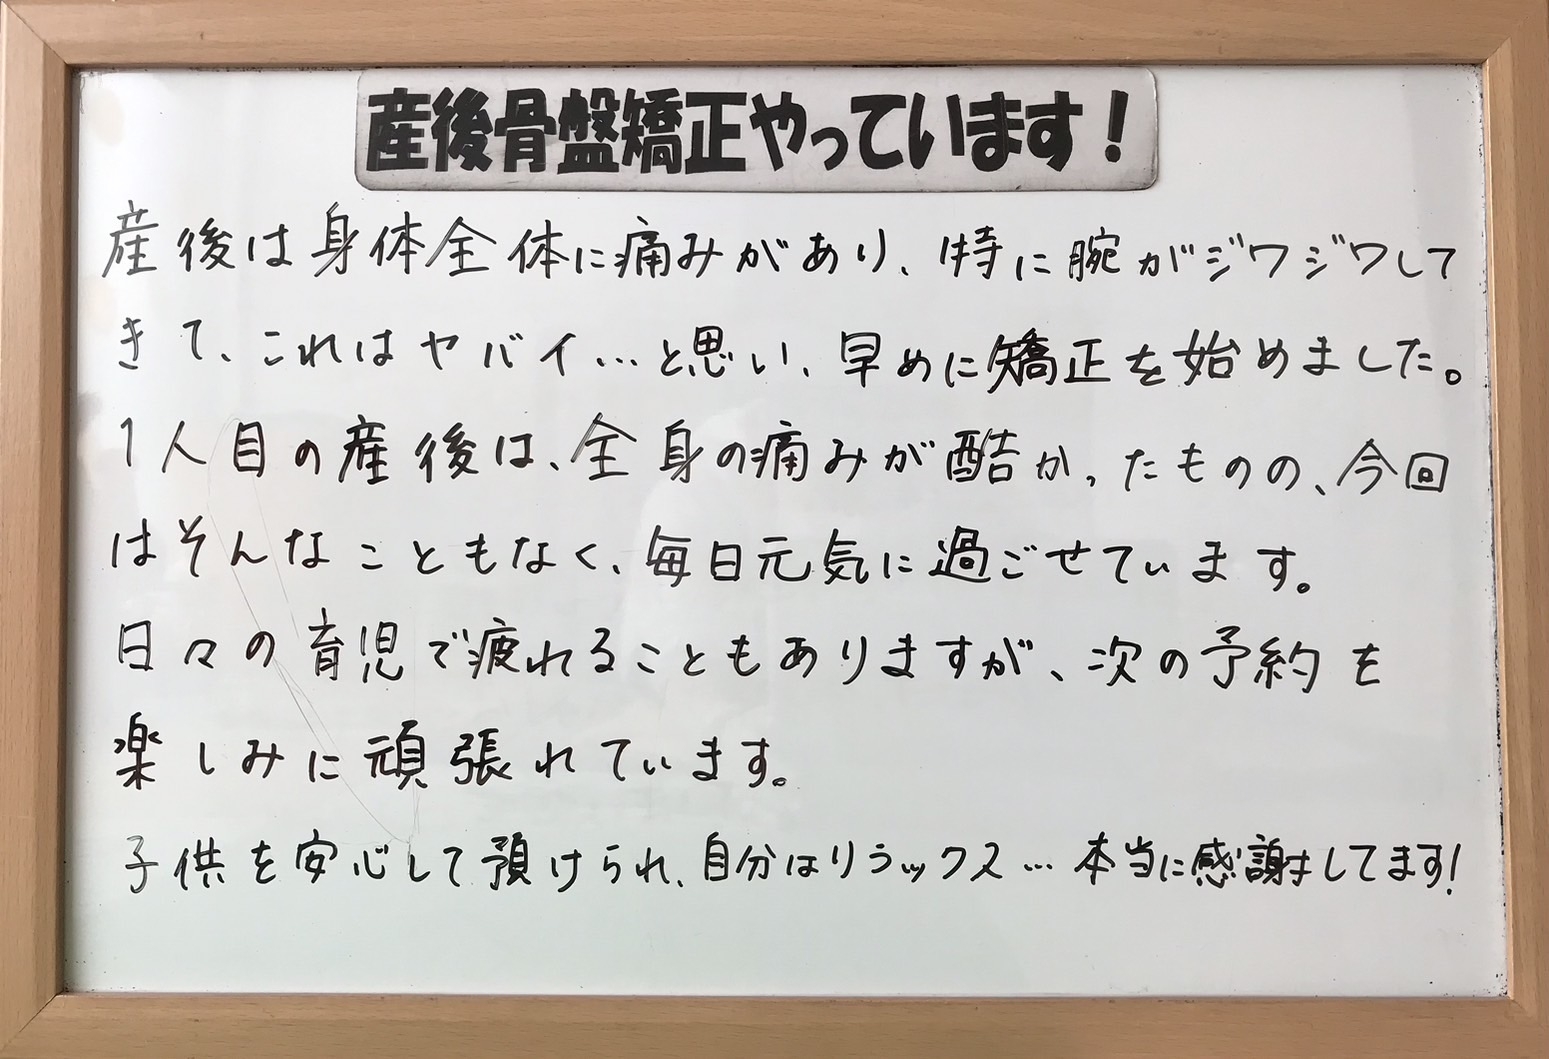 産後骨盤矯正やっています!
産後は身体全体に痛みがあり、特に腕がジワジワして
きて、これはヤバイ…と思い、早めに矯正を始めました。
1人目の産後は、全身の痛みが酷かったものの、今回
はそんなこともなく、毎日元気に過ごせています。
日々の育児で疲れることもありますが、次の予約を
楽しみに頑張れています。
子供を安心して預けられ、自分はリラックス…本当に感謝してます!